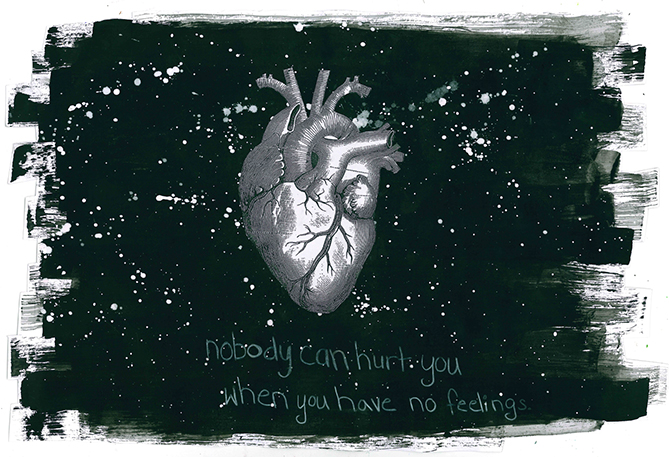 nobody can hurt you
when you have no feelings.